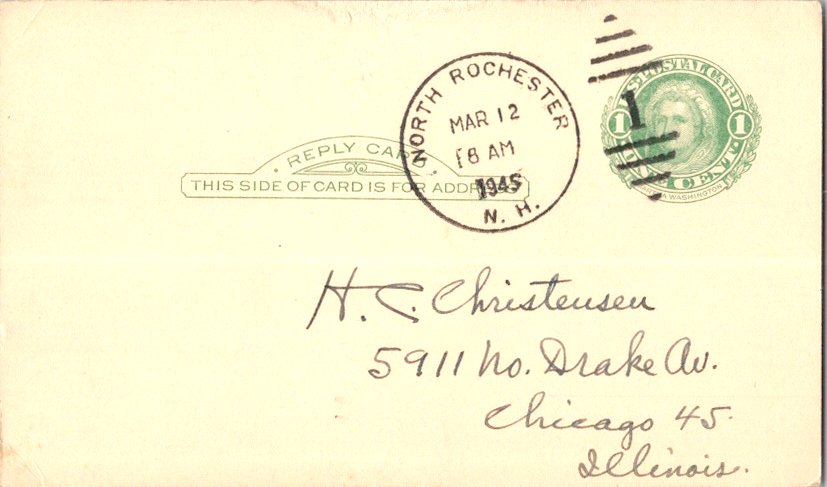 NORTH ROCHESTER
MAR 12
8 AM
1945
N. H.
1
U.S. POSTAL CARD
1 1
ONE CENT.
MARTHA WASHINGTON
REPLY CARD
THIS SIDE OF CARD IS FOR ADDRESS
H. C. Christensen
5911 No. Drake Av.
Chicago 45
Illinois.